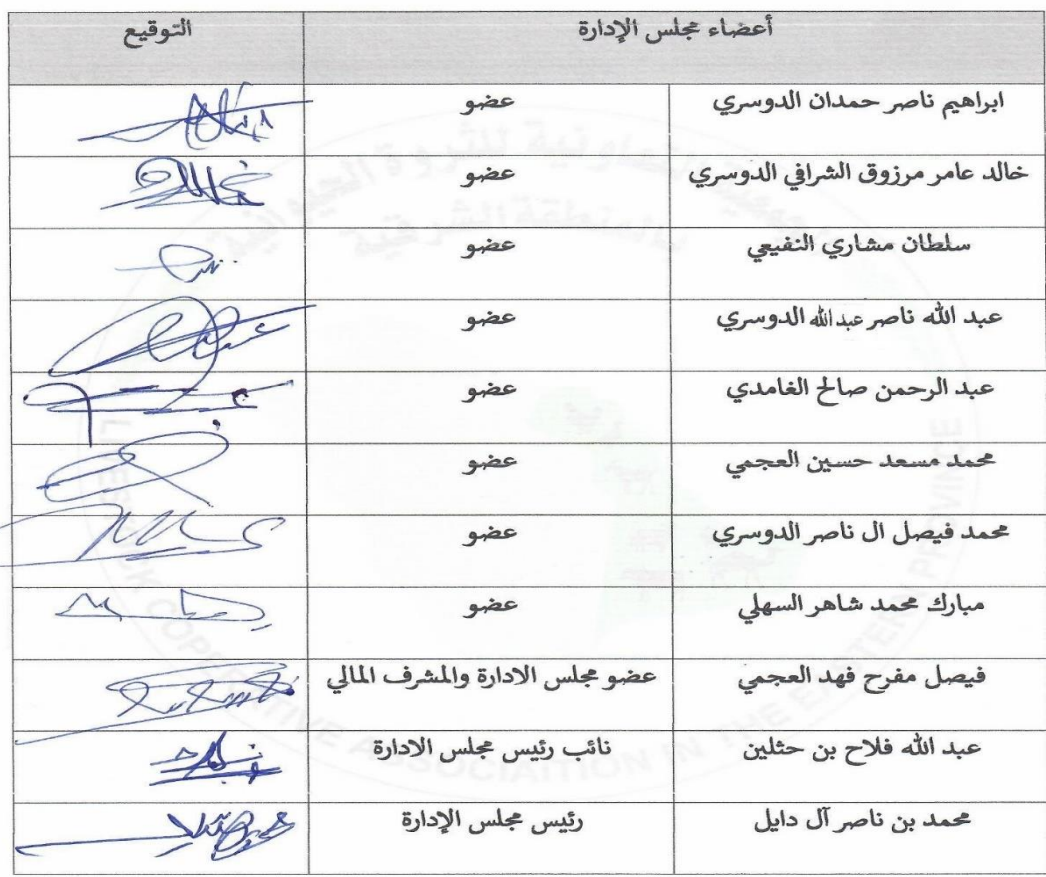 أعضاء مجلس الإدارة التوقيع
ابراهيم ناصر حمدان الدوسري عضو
خالد عامر مرزوق الشرافي الدوسري عضو
سلطان مشاري النفيعي عضو
عبد الله ناصر عبدالله الدوسري عضو
عبد الرحمن صالح الغامدي عضو
محمد مسعد حسين العجمي عضو
محمد فيصل ال ناصر الدوسري عضو
مبارك محمد شاهر السهلي عضو
فيصل مفرح فهد العجمي عضو مجلس الادارة والمشرف المالي
عبد الله فلاح بن حثلين نائب رئيس مجلس الادارة
محمد بن ناصر آل دايل رئيس مجلس الإدارة
الجمعية التعاونية للثروة الحيوانية
بالمنطقة الشرقية
LIVESTOCK COPERATIVE ASSOCIAITION IN THE EASTERN PROVINCE